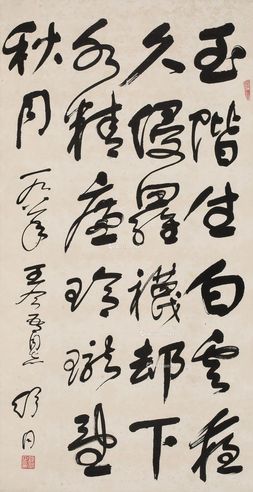 玉階生白露夜
久侵羅襪却下
水精簾玲瓏望
秋月
舒同